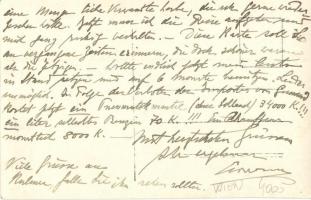 eine Menge liebe Verwandte habe, die ich gerne wieder
sehen wollte. Jetzt muss ich die Reise aufgeben und
mich ganz ruhig verhalten. Diese Karte soll Sie
an vergangene Zeiten erinnern, die doch schöner waren
als die jetzigen. Wollte endlich jetzt mein
in Stand setzen und auf 6 Monate benützen. Leider
unmöglich. In Folge des Verbotes des Importes von Gummi
kostet jetzt ein Pneumatikmantel (aus Holland) 34000 K.!!!
ein Liter schlechtes Benzin 70 K. !!! Ein Chauffeur
monatlich 8000 K.
Mit herzlichsten Grüssen
Ihr ergebener
Viele Grüsse an
falls Sie ihn sehen sollten.
WIEN